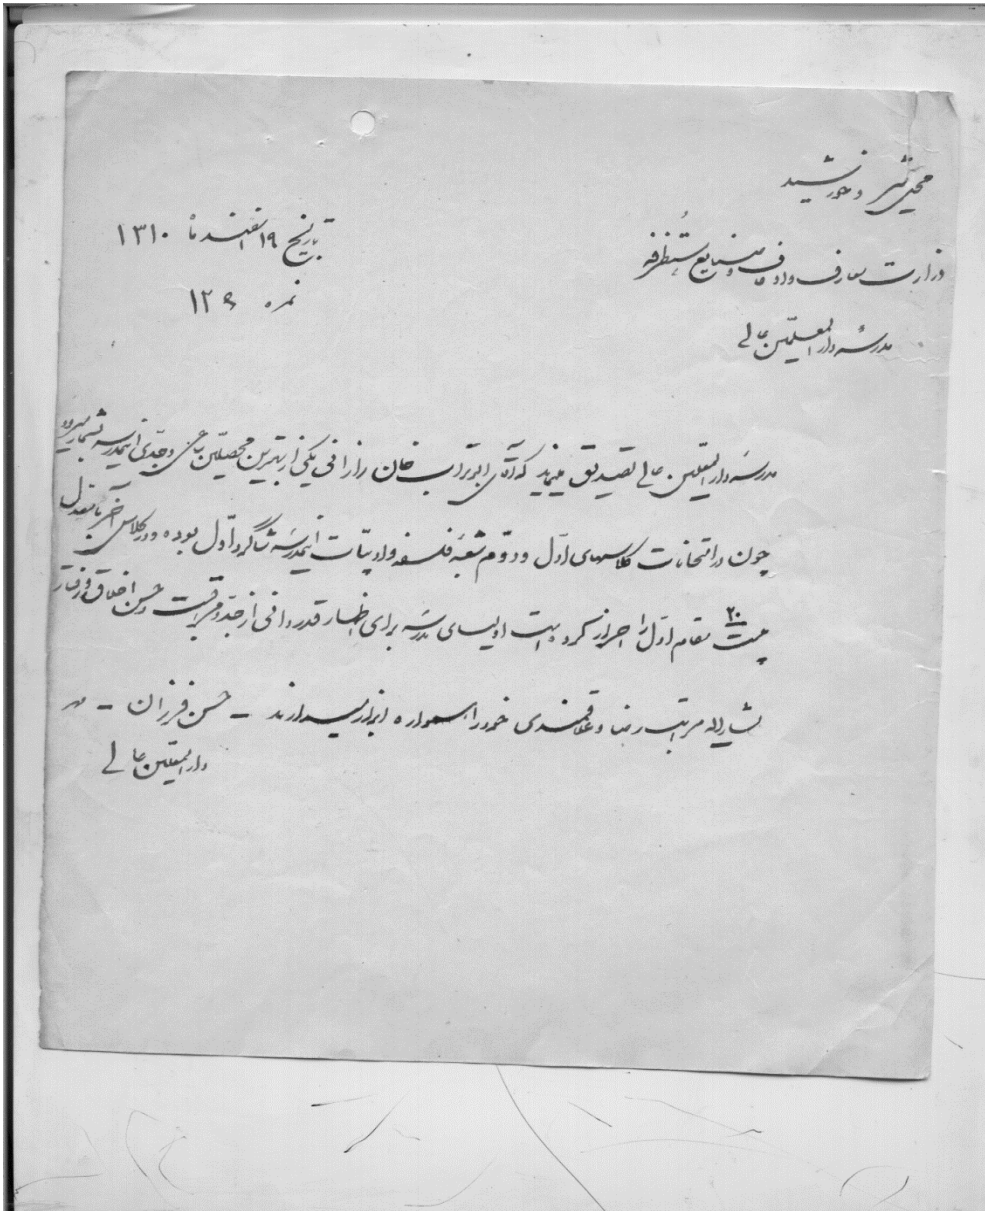 محل شیر و خورشید
وزارت معارف و اوقاف و صنایع مستظرفه
تاریخ ۱۹ اسفند ماه ۱۳۱۰
نمره
مدرسه دار المعلمین عالی
مدرسه دار المعلمین عالی تصدیق مینماید که آقای ابوتراب خان رازانی یکی از بهترین محصلین ساعی و جدی این مدرسه بشمار میرود
چون در امتحانات کلاسهای اول و دوم شعبه فلسفه و ادبیات این مدرسه شاگرد اول بوده و در کلاس آخر با معدل
۲۰ بیست مقام اول را احراز کرده است اولیای مدرسه برای اظهار قدردانی از جد و مراقبت و حسن اخلاق و رفتار
مشارالیه مراتب رضا و علاقمندی خود را همواره ابراز میدارند - حسن فرزان - مهر
دار المعلمین عالی